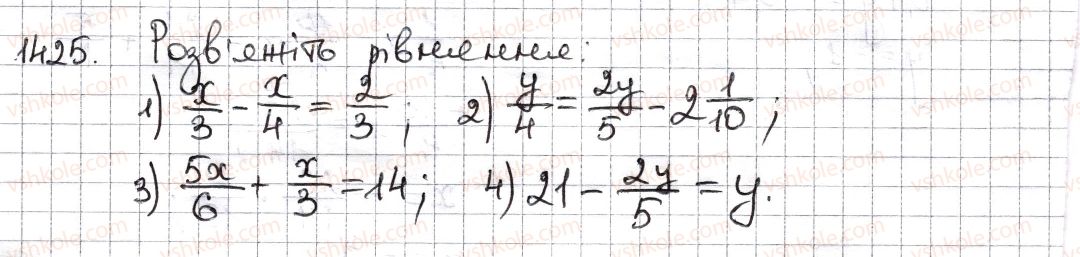 1425. Розв'яжіть рівняння:
1) x/3 - x/4 = 2/3; 2) y/4 = 2y/5 - 2 1/10;
3) 5x/6 + x/3 = 14; 4) 21 - 2y/5 = y.